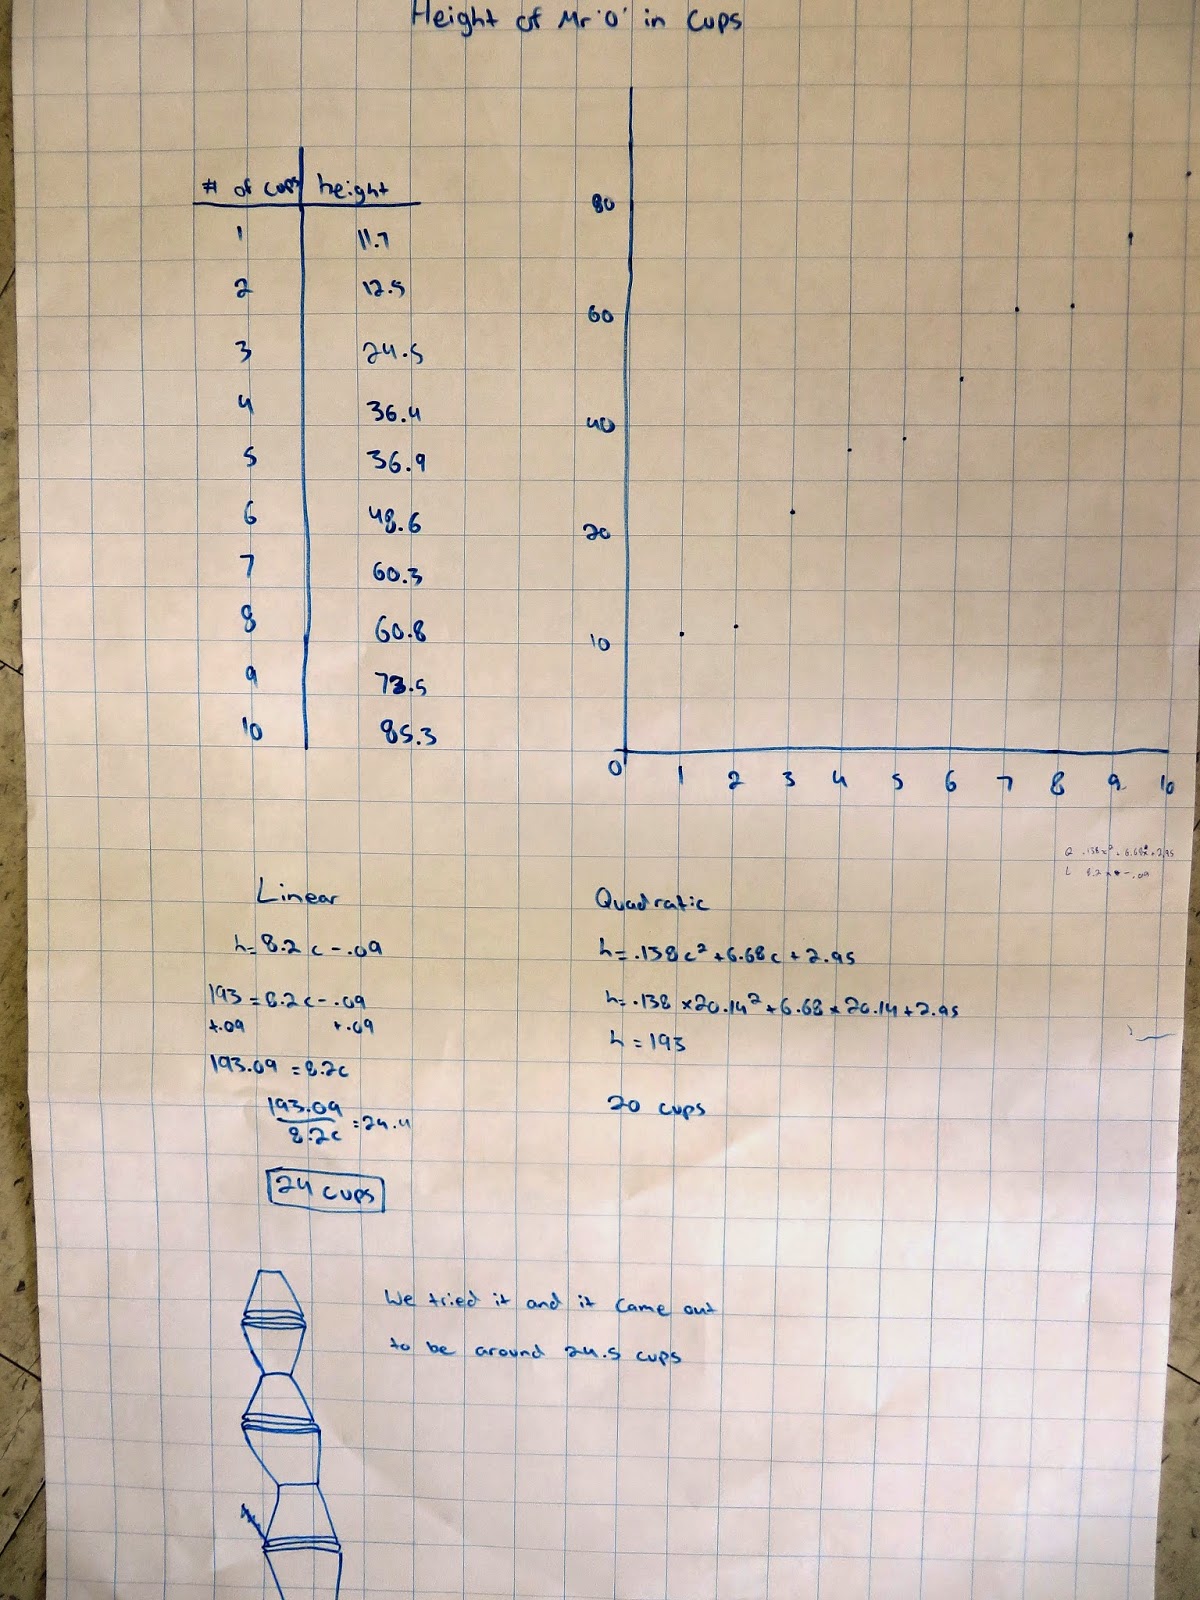 Height of Mr 'O' in Cups
# of cups height
1 11.7
2 12.5
3 24.5
4 36.4
5 36.9
6 48.6
7 60.3
8 60.8
9 73.5
10 85.3
80
60
40
20
10
0 1 2 3 4 5 6 7 8 9 10
Q .138x² + 6.68x + 2.95
L 8.2x - .09
Linear
h = 8.2c - .09
193 = 8.2c - .09
+.09 +.09
193.09 = 8.2c
193.09
8.2c
= 24.4
24 cups
Quadratic
h = .138c² + 6.68c + 2.95
h = .138 × 20.14² + 6.68 × 20.14 + 2.95
h = 193
20 cups
We tried it and it came out
to be around 24.5 cups